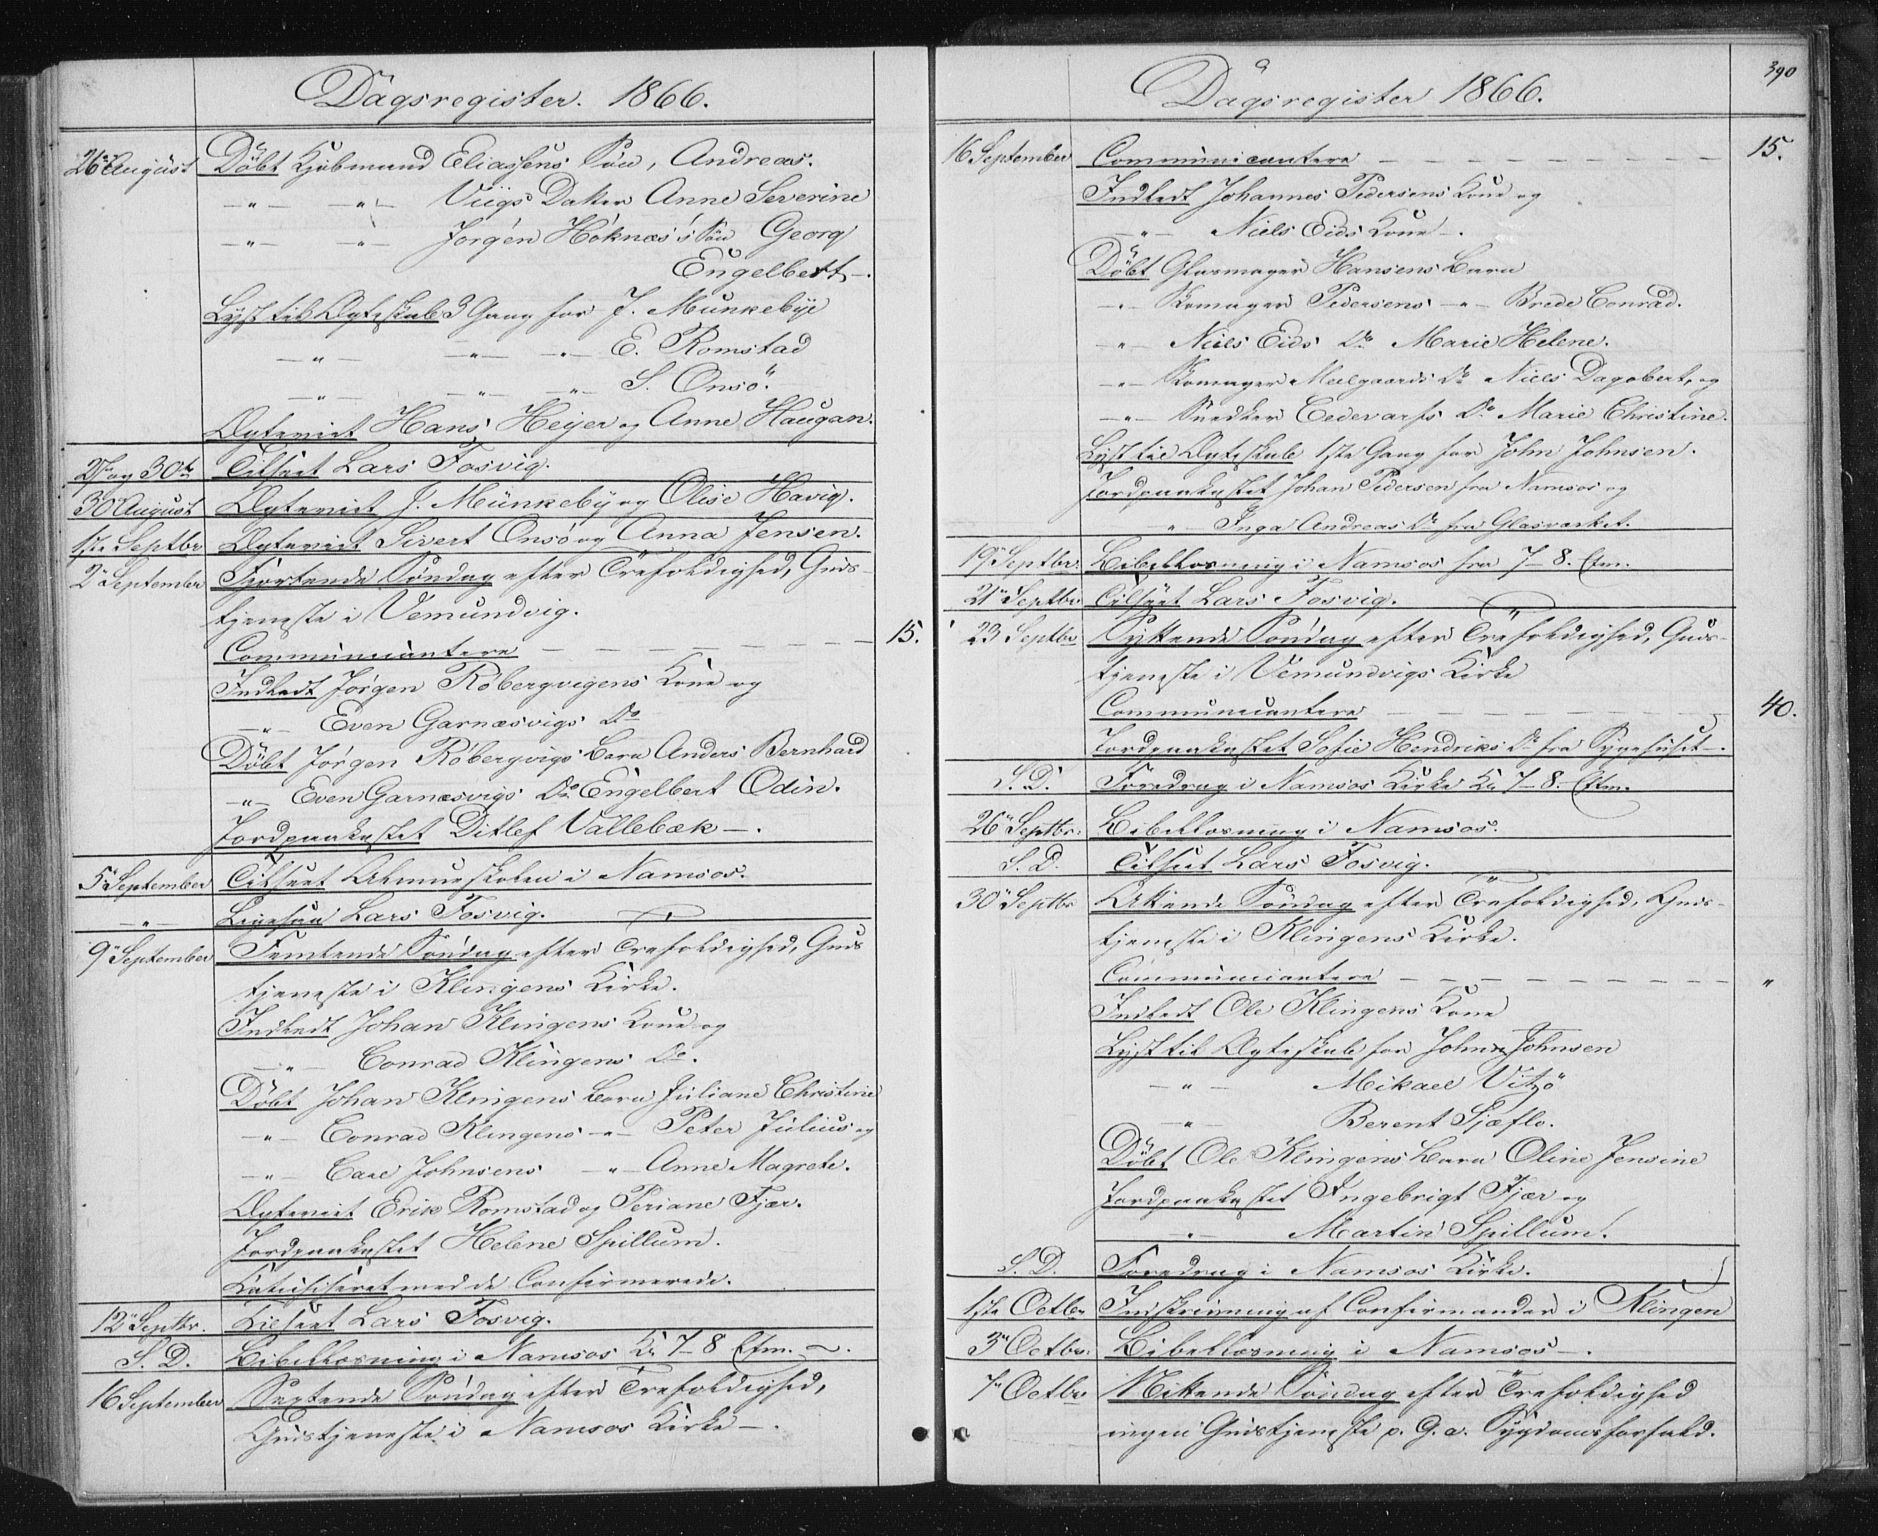 Dagsregister. 1866.
26de August Döbt Kjöbmand Eliassens Sön, Andreas.
— „ — „ — Viigs Datter Anne Severine
— „ — „ — Jørgen Höknæs's Sön Georg
Engelbert —.
Lyst til Ægteskab 3 Gang for J. Munkebye
— „ — „ — „ — E. Romstad
— „ — „ — „ — S. Onsö.
Ægteviet Hans Heijer og Anne Haugan.
27 og 30te Tilseet Lars Fosvig.
30 August Ægteviet J. Münkeby og Olise Havig.
1ste Septbr. Ægteviet Sivert Onsö og Anna Jensen.
2 September Fjortende Söndag efter Trefoldighed, Guds-
tjeneste i Vemundvig.
Communicantere — — — — — — 15.
Indledt Jørgen Röbergvigens Kone og
— „ — Even Garnæsvigs Do
Döbt Jørgen Röbergvigs Barn Anders Bernhard
— „ — Even Garnæsvigs Do Engelbert Odin.
Jordpaakastet Ditlef Vallebæk —.
5 September Tilseet Almueskolen i Namsos.
„ Ligesaa Lars Fosvig.
9 September Femtende Söndag efter Trefoldighed, Guds
tjeneste i Klingens Kirke.
Indledt Johan Klingens Kone og
— „ — Conrad Klingens Do.
Döbt Johan Klingens Barn Juliane Christine
— „ — Conrad Klingens — „ — Peter Julius og
— „ — Carl Johnsens — „ — Anne Magrete.
Ægteviet Erik Romstad og Periane Fjær.
Jordpaakastet Helene Spillum.
Katechiseret med de Confirmerede.
12 Septbr. Tilseet Lars Fosvig.
S. D. Bibellæsning i Namsos Kl. 7–8 Efm. —.
16 September Sextende Söndag efter Trefoldighed,
Gudstjeneste i Namsos Kirke —.
Dagsregister 1866.
390
16 September Communicantere — — — — — — 15.
Indledt Johannes Pedersens Kone og
— „ — Niels Eids Kone —.
Döbt Glasmager Hansens Barn
— „ Skomager Pedersens — „ — Brede Conrad.
— „ — Niels Eids Do Marie Helene.
— „ — Skomager Melgaards Do Niels Dagobert, og
— „ — Snedker Cedevarfs Do Marie Christine.
Lyst til Ægteskab 1ste Gang for John Johnsen.
Jordpaakastet Johan Pedersen fra Namsos og
— „ — Inga Andreas Dr fra Glasværket.
19 Septbr. Bibellæsning i Namsos fra 7–8. Efm.
21 Septbr Tilseet Lars Fosvig.
23 Septbr Syttende Söndag efter Trefoldighed, Guds-
tjeneste i Vemundvigs Kirke
Communicantere — — — — — — 40.
Jordpaakastet Sofie Hendriks Dr fra Sygehuset —.
S. D. Foredrag i Namsos Kirke Kl. 7–8. Eftm.
26 Septbr. Bibellæsning i Namsos.
S. D. Tilseet Lars Fosvig.
30 Septbr Attende Söndag efter Trefoldighed, Guds-
tjeneste i Klingens Kirke.
Communicantere — — — — — — „
Indledt Ole Klingens Kone
Lyst til Ægteskab for John Johnsen
— „ — Mikael Vitsö
— „ — Berent Sjæflo.
Döbt Ole Klingens Barn Oline Jensine
Jordpaakastet Ingebrigt Fjær og
— „ — Martin Spillum.
S. D. Foredrag i Namsos Kirke.
1ste Octbr Indskrivning af Confirmander i Klingen
3 Octbr. Bibellæsning i Namsos —.
7 Octbr Nittende Söndag efter Trefoldighed
ingen Gudstjeneste p. G. a. Sygdomsforfald.